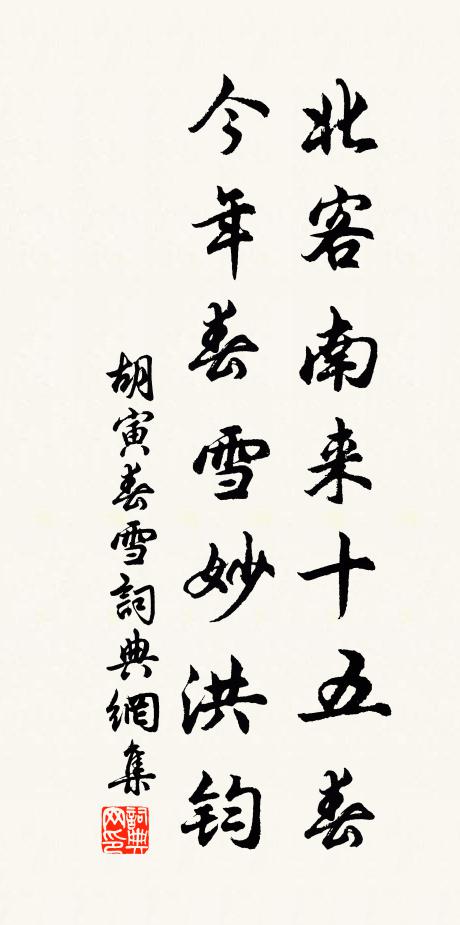 北客南来十五春
今年春雪妙洪钧
胡寅春雪詞典網集
詞典网印